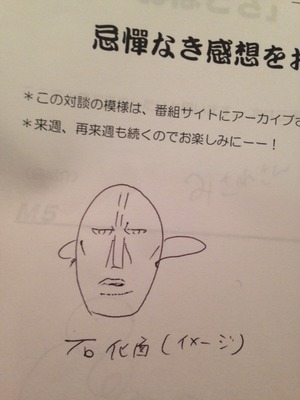 忌憚なき感想をお
＊この対談の模様は、番組サイトにアーカイブさ
＊来週、再来週も続くのでお楽しみにーー！
石化面（イメージ）